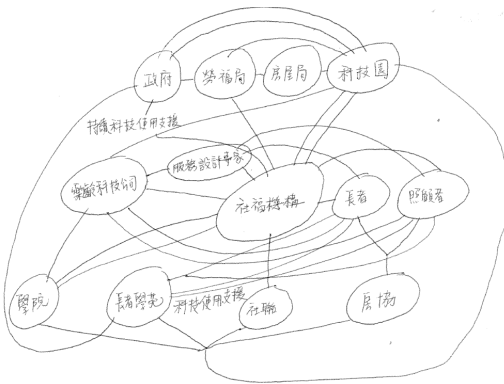 政府
勞福局
房屋局
科技園
持續科技使用支援
服務設計專家
樂齡科技公司
社福機構
長者
照顧者
學院
長者學苑
科技使用支援
社聯
房協